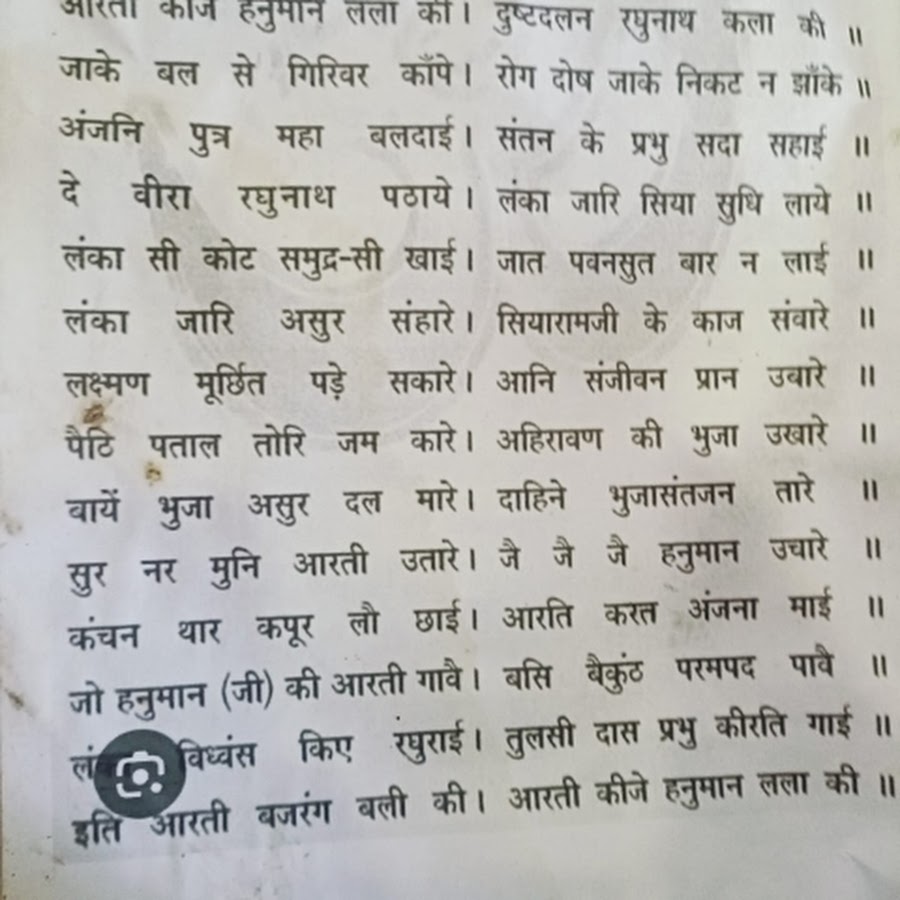 आरती कीजे हनुमान लला की। दुष्टदलन रघुनाथ कला की ॥
जाके बल से गिरिवर काँपे। रोग दोष जाके निकट न झाँके ॥
अंजनि पुत्र महा बलदाई। संतन के प्रभु सदा सहाई ॥
दे वीरा रघुनाथ पठाये। लंका जारि सिया सुधि लाये ॥
लंका सी कोट समुद्र-सी खाई। जात पवनसुत बार न लाई ॥
लंका जारि असुर संहारे। सियारामजी के काज संवारे ॥
लक्ष्मण मूर्छित पड़े सकारे। आनि संजीवन प्रान उबारे ॥
पैठि पताल तोरि जम कारे। अहिरावण की भुजा उखारे ॥
बायें भुजा असुर दल मारे। दाहिने भुजासंतजन तारे ॥
सुर नर मुनि आरती उतारे। जै जै जै हनुमान उचारे ॥
कंचन थार कपूर लौ छाई। आरति करत अंजना माई ॥
जो हनुमान (जी) की आरती गावै। बसि बैकुंठ परमपद पावै ॥
विध्वंस किए रंघुराई। तुलसी दास प्रभु कीरति गाई ॥
इति आरती बजरंग बली की। आरती कीजे हनुमान लला की ॥